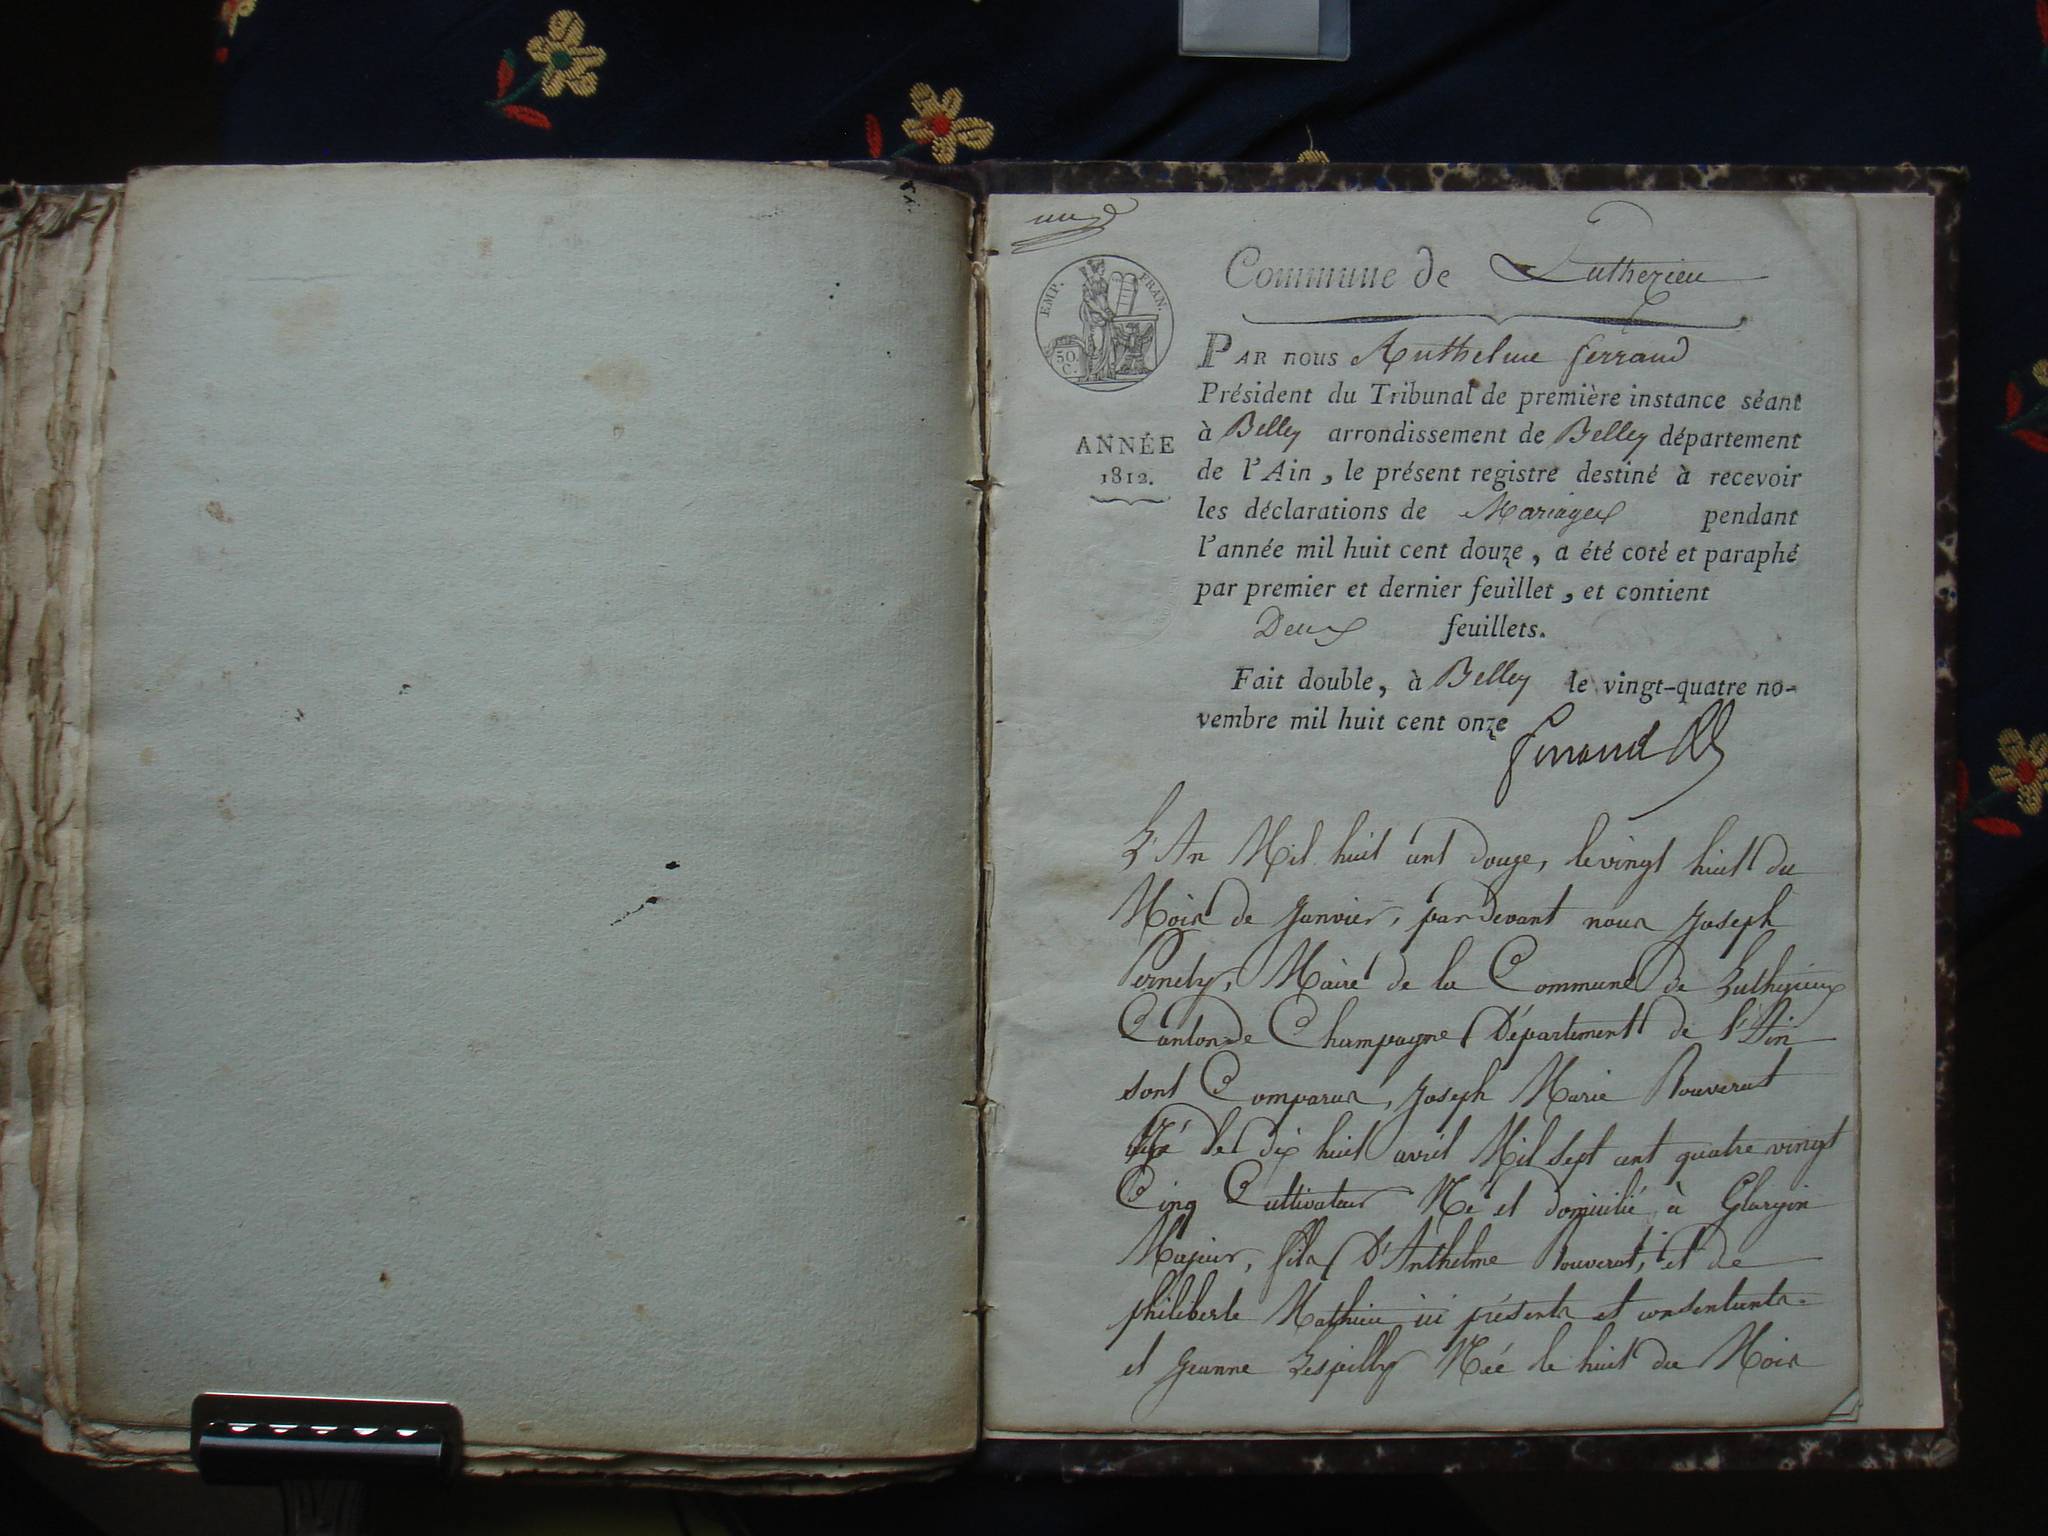 une
EMP. FRAN.
50.
C.
Commune de Luthezieu
PAR nous Anthelme ferrand
Président du Tribunal de première instance séant
ANNÉE
1812.
à Belley arrondissement de Belley département
de l'Ain, le présent registre destiné à recevoir
les déclarations de Mariages pendant
l'année mil huit cent douze, a été coté et paraphé
par premier et dernier feuillet, et contient
Deux feuillets.
Fait double, à Belley le vingt-quatre no-
vembre mil huit cent onze
ferrand
L'An Mil huit cent douze, le vingt huit du
Mois de Janvier, pardevant nous Joseph
Pernety, Maire de la Commune de Luthezieux
Canton de Champagne Département de l'Ain
sont Comparus, Joseph Marie Bouverat
Né le dix huit avril Mil sept cent quatre vingt
Cinq Cultivateur Né et domicilié à
Majeur, fils D'Anthelme Bouverat, et de
philiberte Mathieu ici présents et consentants.
et Jeanne Née le huit du Mois